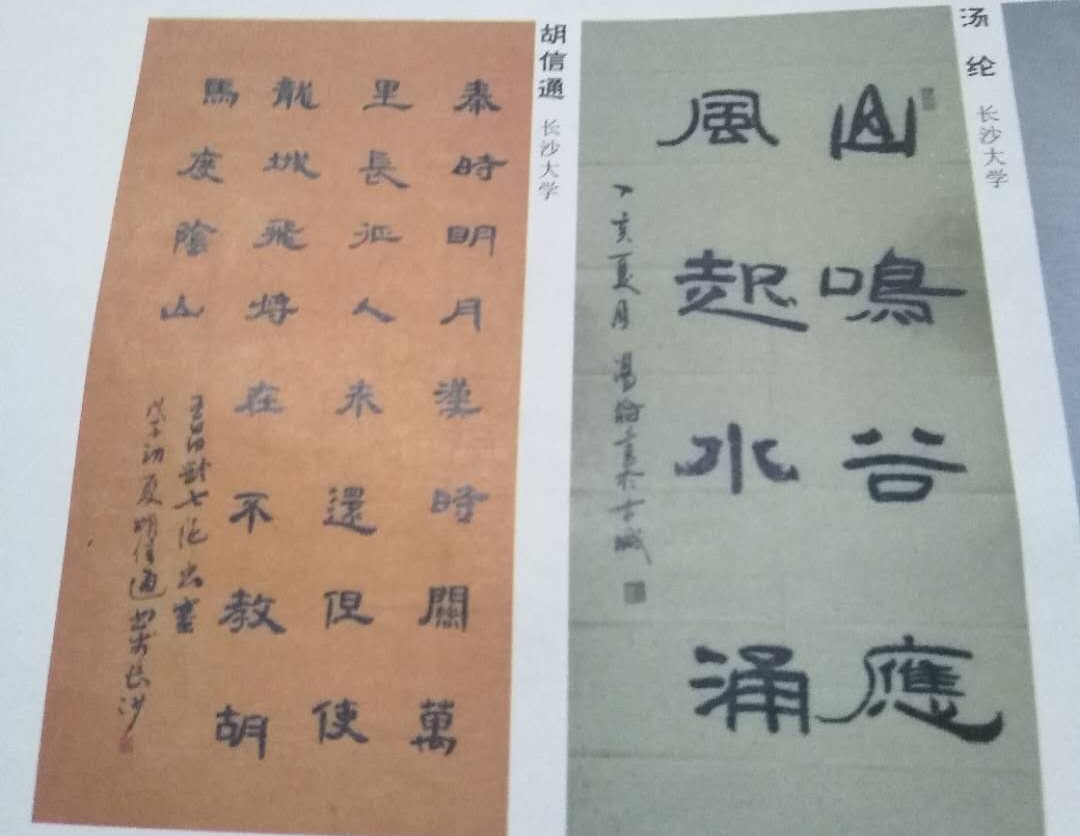 汤纶 长沙大学
山鳴谷應
風起水涌
丁亥夏月 湯綸書於古城
胡信通 长沙大学
秦時明月漢時關萬
里長征人未還但使
龍城飛將在不教胡
馬度陰山
王昌齡七绝出塞
戊子初夏胡信通書於长沙